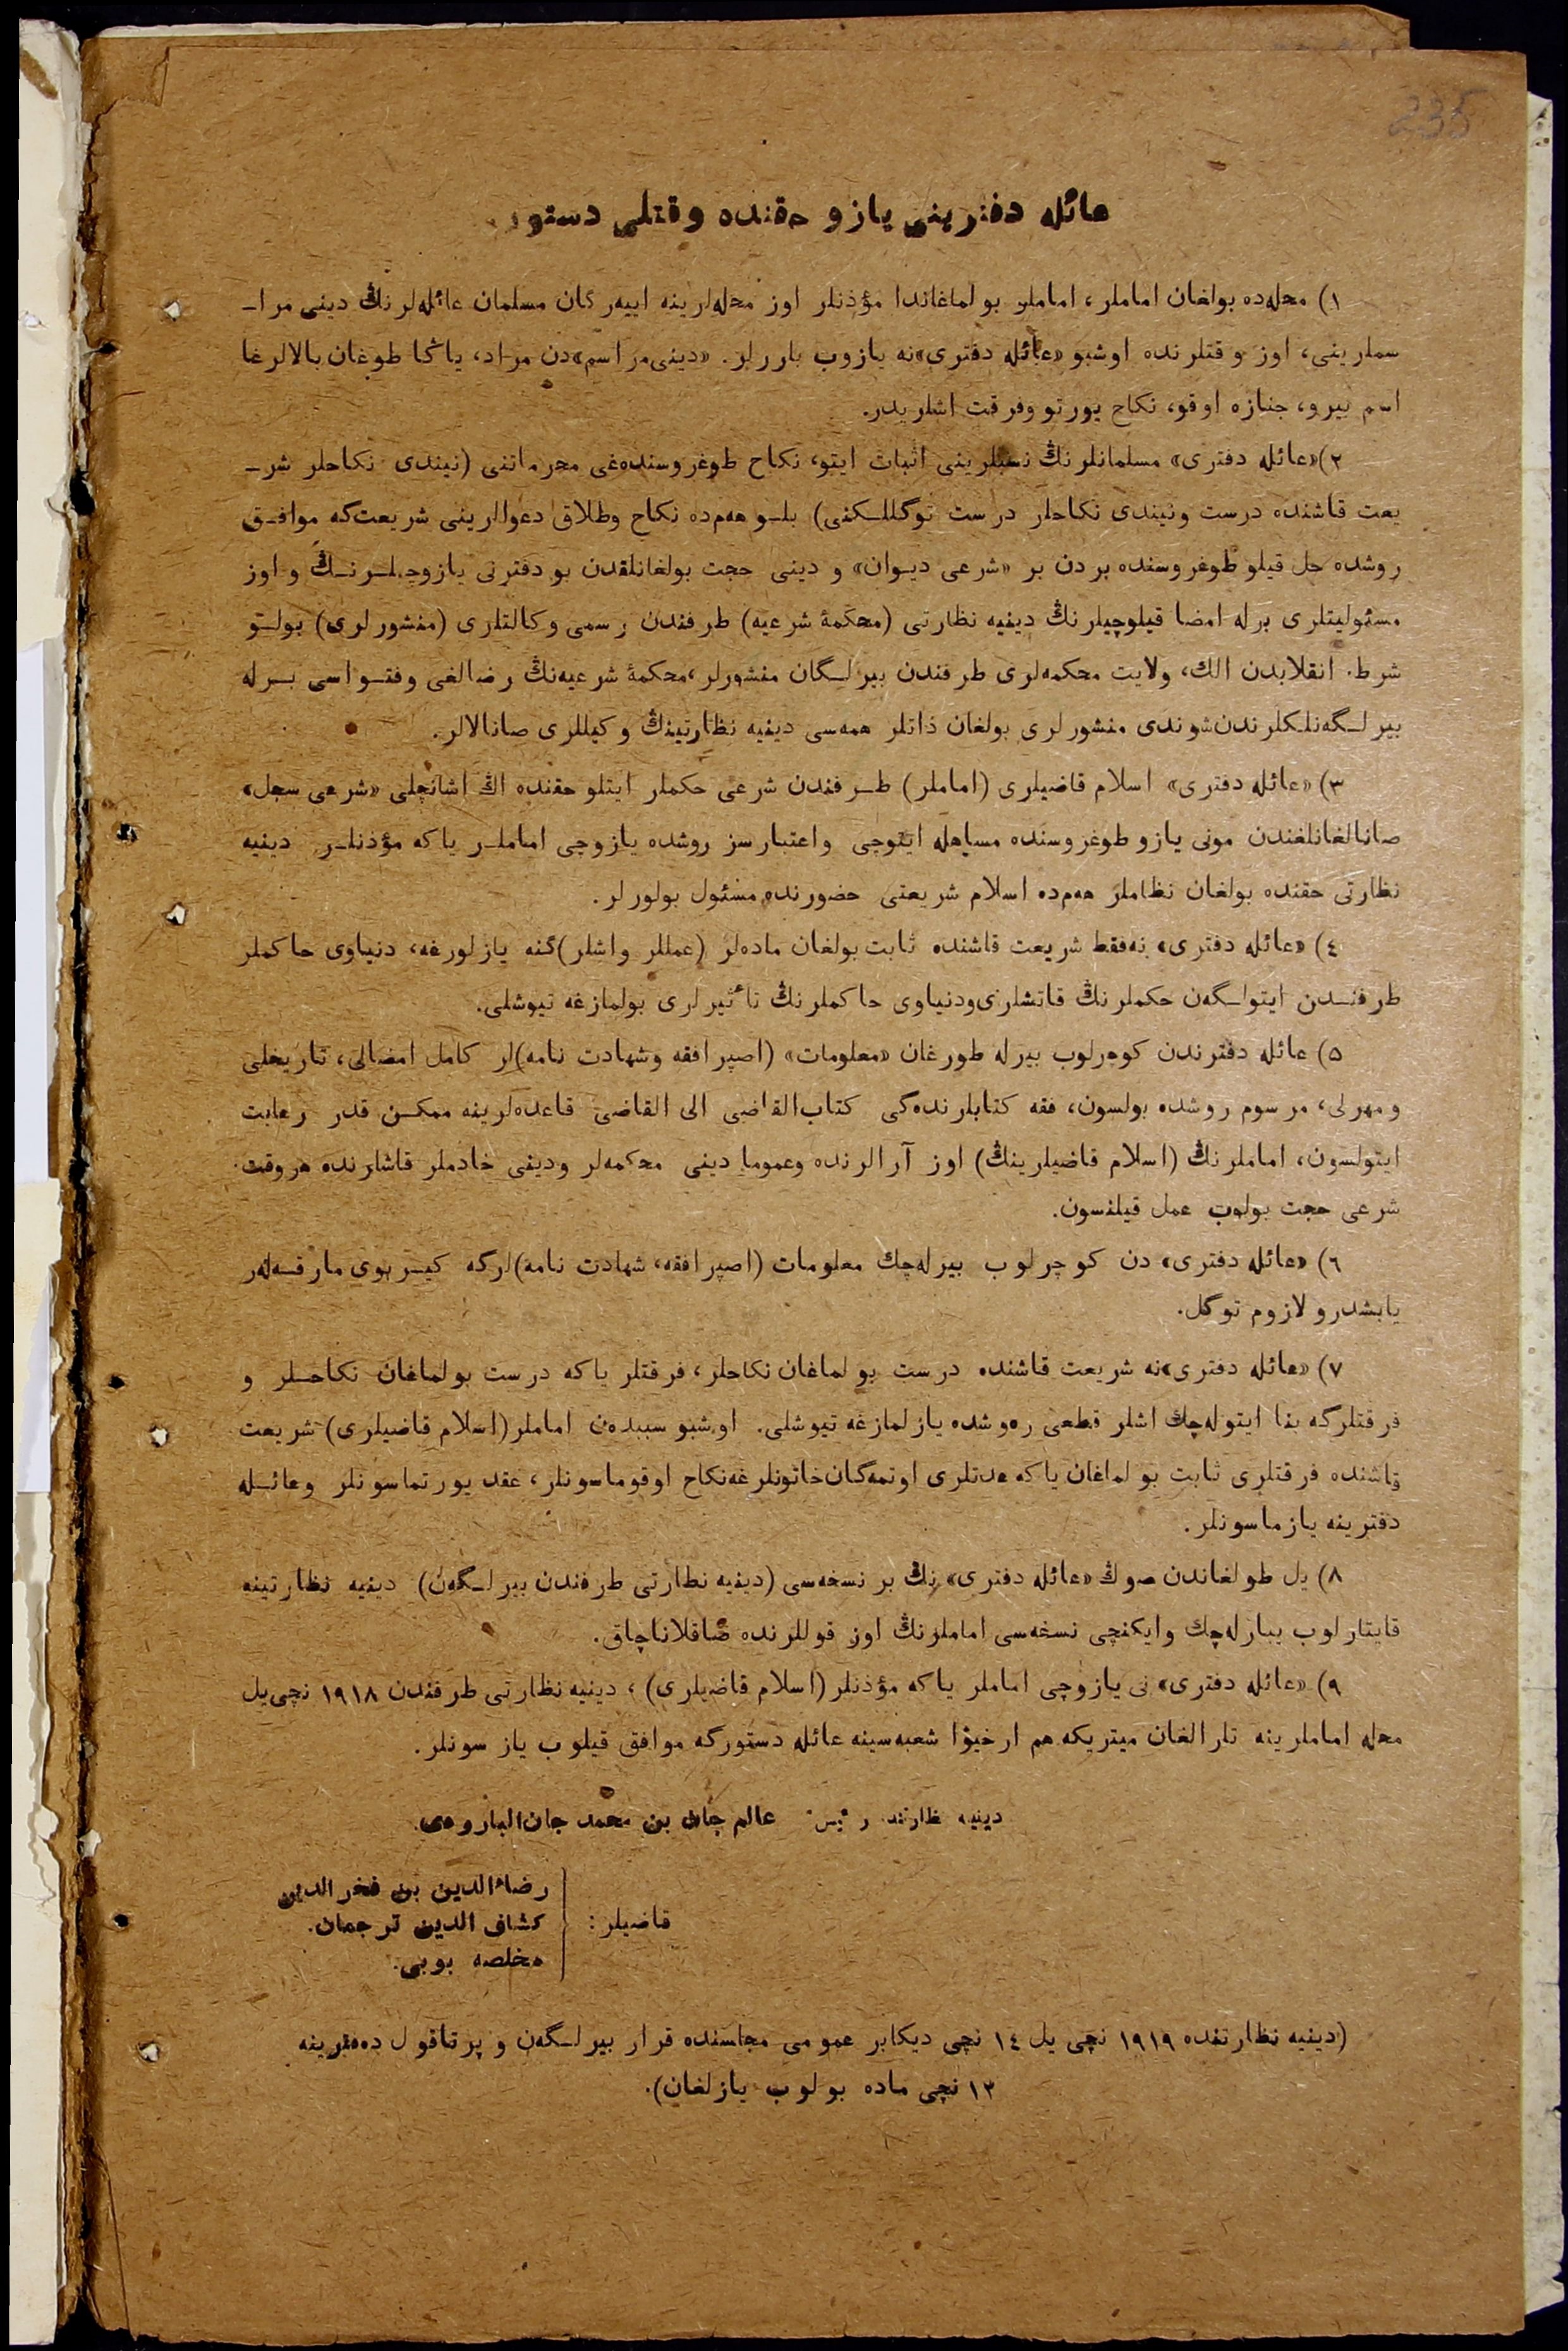 235
عائله دفترینی یازو حقنده وقتلی دستور.
١) محله‌ده بولغان اماملر، اماملر بولماغاندا مؤذنلر اوز محله‌لرینه اییه‌رگان مسلمان عائله‌لرنڭ دینی مرا-
سملرینی، اوز وقتلرنده اوشبو «عائله دفتری»نه یازوب باررلر. «دینی مراسم»دن مراد، یاڭا طوغان بالالرغا
اسم بیرو، جنازه اوقو، نکاح یورتو وفرقت اشلریدر.
٢) «عائله دفتری» مسلمانلرنڭ نسبلرینی اثبات ایتو، نکاح طوغروسنده‌غی محرماتنی (نیندی نکاحلر شر-
یعت قاشنده درست ونیندی نکاحلر درست توگللـکنی) بلـو هه‌م‌ده نکاح وطلاق دعوالرینی شریعت‌که موافـق
روشده حل قیلو طوغروسنده بردن بر «شرعی دیـوان» و دینی حجت بولغانلقدن بو دفترنی یازوچیلـرنـڭ و اوز
مسئولیتلری برله امضا قیلوچیلرنڭ دینیه نظارتی (محکمهٔ شرعیه) طرفندن رسمی وکالتلری (منشورلری) بولـو
شرط. انقلابدن الك، ولایت محکمه‌لری طرفندن بیرلـگان منشورلر، محکمهٔ شرعیه‌نڭ رضالغی وفتـواسی بـرله
بیرلـگه‌نلـکلرندن شوندی منشورلری بولغان ذاتلر همه‌سی دینیه نظارتینڭ وکیللری صانالالر.
٣) «عائله دفتری» اسلام قاضیلری (اماملر) طـرفندن شرعی حکملر ایتلو حقنده اڭ اشانچلی «شرعی سجل»
صانالغانلغندن مونی یازو طوغروسنده مساهله ایتوچی واعتبارسز روشده یازوچی اماملـر یاکه مؤذنلـر دینیه
نظارتی حقنده بولغان نظاملر هه‌م‌ده اسلام شریعتی حضورنده مسئول بولورلر.
٤) «عائله دفتری» نه‌فقط شریعت قاشنده ثابت بولغان ماده‌لر (عمللر واشلر)گنه یازلورغه، دنیاوی حاکملر
طرفنـدن ایتولـگه‌ن حکملرنڭ قاتشلری ودنیاوی حاکملرنڭ تأثیرلری بولمازغه تیوشلی.
٥) عائله دفترندن کوچرلوب بیرله طورغان «معلومات» (اصپرافقه وشهادت نامه)لر کامل امضالی، تاریخلی
ومهرلی، مرسوم روشده بولسون، فقه کتابلرنده‌گی کتاب‌القاضی الی القاضی قاعده‌لرینه ممکـن قدر رعایت
ایتولسون، اماملرنڭ (اسلام قاضیلرینڭ) اوز آرالرنده وعموما دینی محکمه‌لر ودینی خادملر قاشلرنده هروقت
شرعی حجت بولوب عمل قیلنسون.
٦) «عائله دفتری» دن کوچرلوب بیرله‌چك معلومات (اصپرافقه، شهادت نامه)لرگه گیـربوی مارقـه‌لر
یابشدرو لازوم توگل.
٧) «عائله دفتری»نه شریعت قاشنده درست بولماغان نکاحلر، فرقتلر یاکه درست بولماغان نکاحـلر و
فرقتلرگه بنا ایتوله‌چك اشلر قطعی ره‌وشده یازلمازغه تیوشلی. اوشبو سببدن اماملر (اسلام قاضیلری) شریعت
قاشنده فرقتلری ثابت بولماغان یاکه عدتلری اوتمه‌گان خاتونلرغه نکاح اوقوماسونلر، عقد یورتماسونلر وعائـله
دفترینه یازماسونلر.
٨) یل طولغاندن صوڭ «عائله دفتری» نڭ بر نسخه‌سی (دینیه نظارتی طرفندن بیرلـگه‌ن) دینیه نظارتینه
قایتارلوب یبارله‌چك وایکنچی نسخه‌سی اماملرنڭ اوز قوللرنده صاقلاناچاق.
٩) «عائله دفتری» نی یازوچی اماملر یاکه مؤذنلر (اسلام قاضیلری)، دینیه نظارتی طرفندن ١٩١٨ نچی یل
محله اماملرینه تارالغان میتریکه هم ارخیوا شعبه‌سینه عائله دستورگه موافق قیلوب یازسونلر.
دینیه نظارتنده رئیس: عالم جان بن محمد جان البارودی.
قاضیلر:
رضاءالدین بن فخرالدین
کشاف الدین ترجمان.
مخلصه بوبی.
(دینیه نظارتنده ١٩١٩ نچی یل ١٤ نچی دیکابر عمومی مجلسنده قرار بیرلـگه‌ن و پرتاقول ده‌فترینه
١٢ نچی ماده بولوب یازلغان).